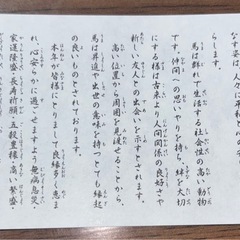 なす姿は、人々に平和と
らします。
馬は群れで生活する社会性の高い動物
です。仲間への思いやりを持ち、絆を大切
にする様は古来より人間関係の良好さや
新しい友人との出会いを示すとされます。
高い位置から周囲を見渡せることから、
馬は昇進や出世の意味を持つとても縁起
の良いものとされております。
本年が皆様にとりまして良縁多く恵ま
れ、心安らかに過ごせますよう無病息災、
家運隆盛、長寿祈願、五穀豊穣、商売繁盛